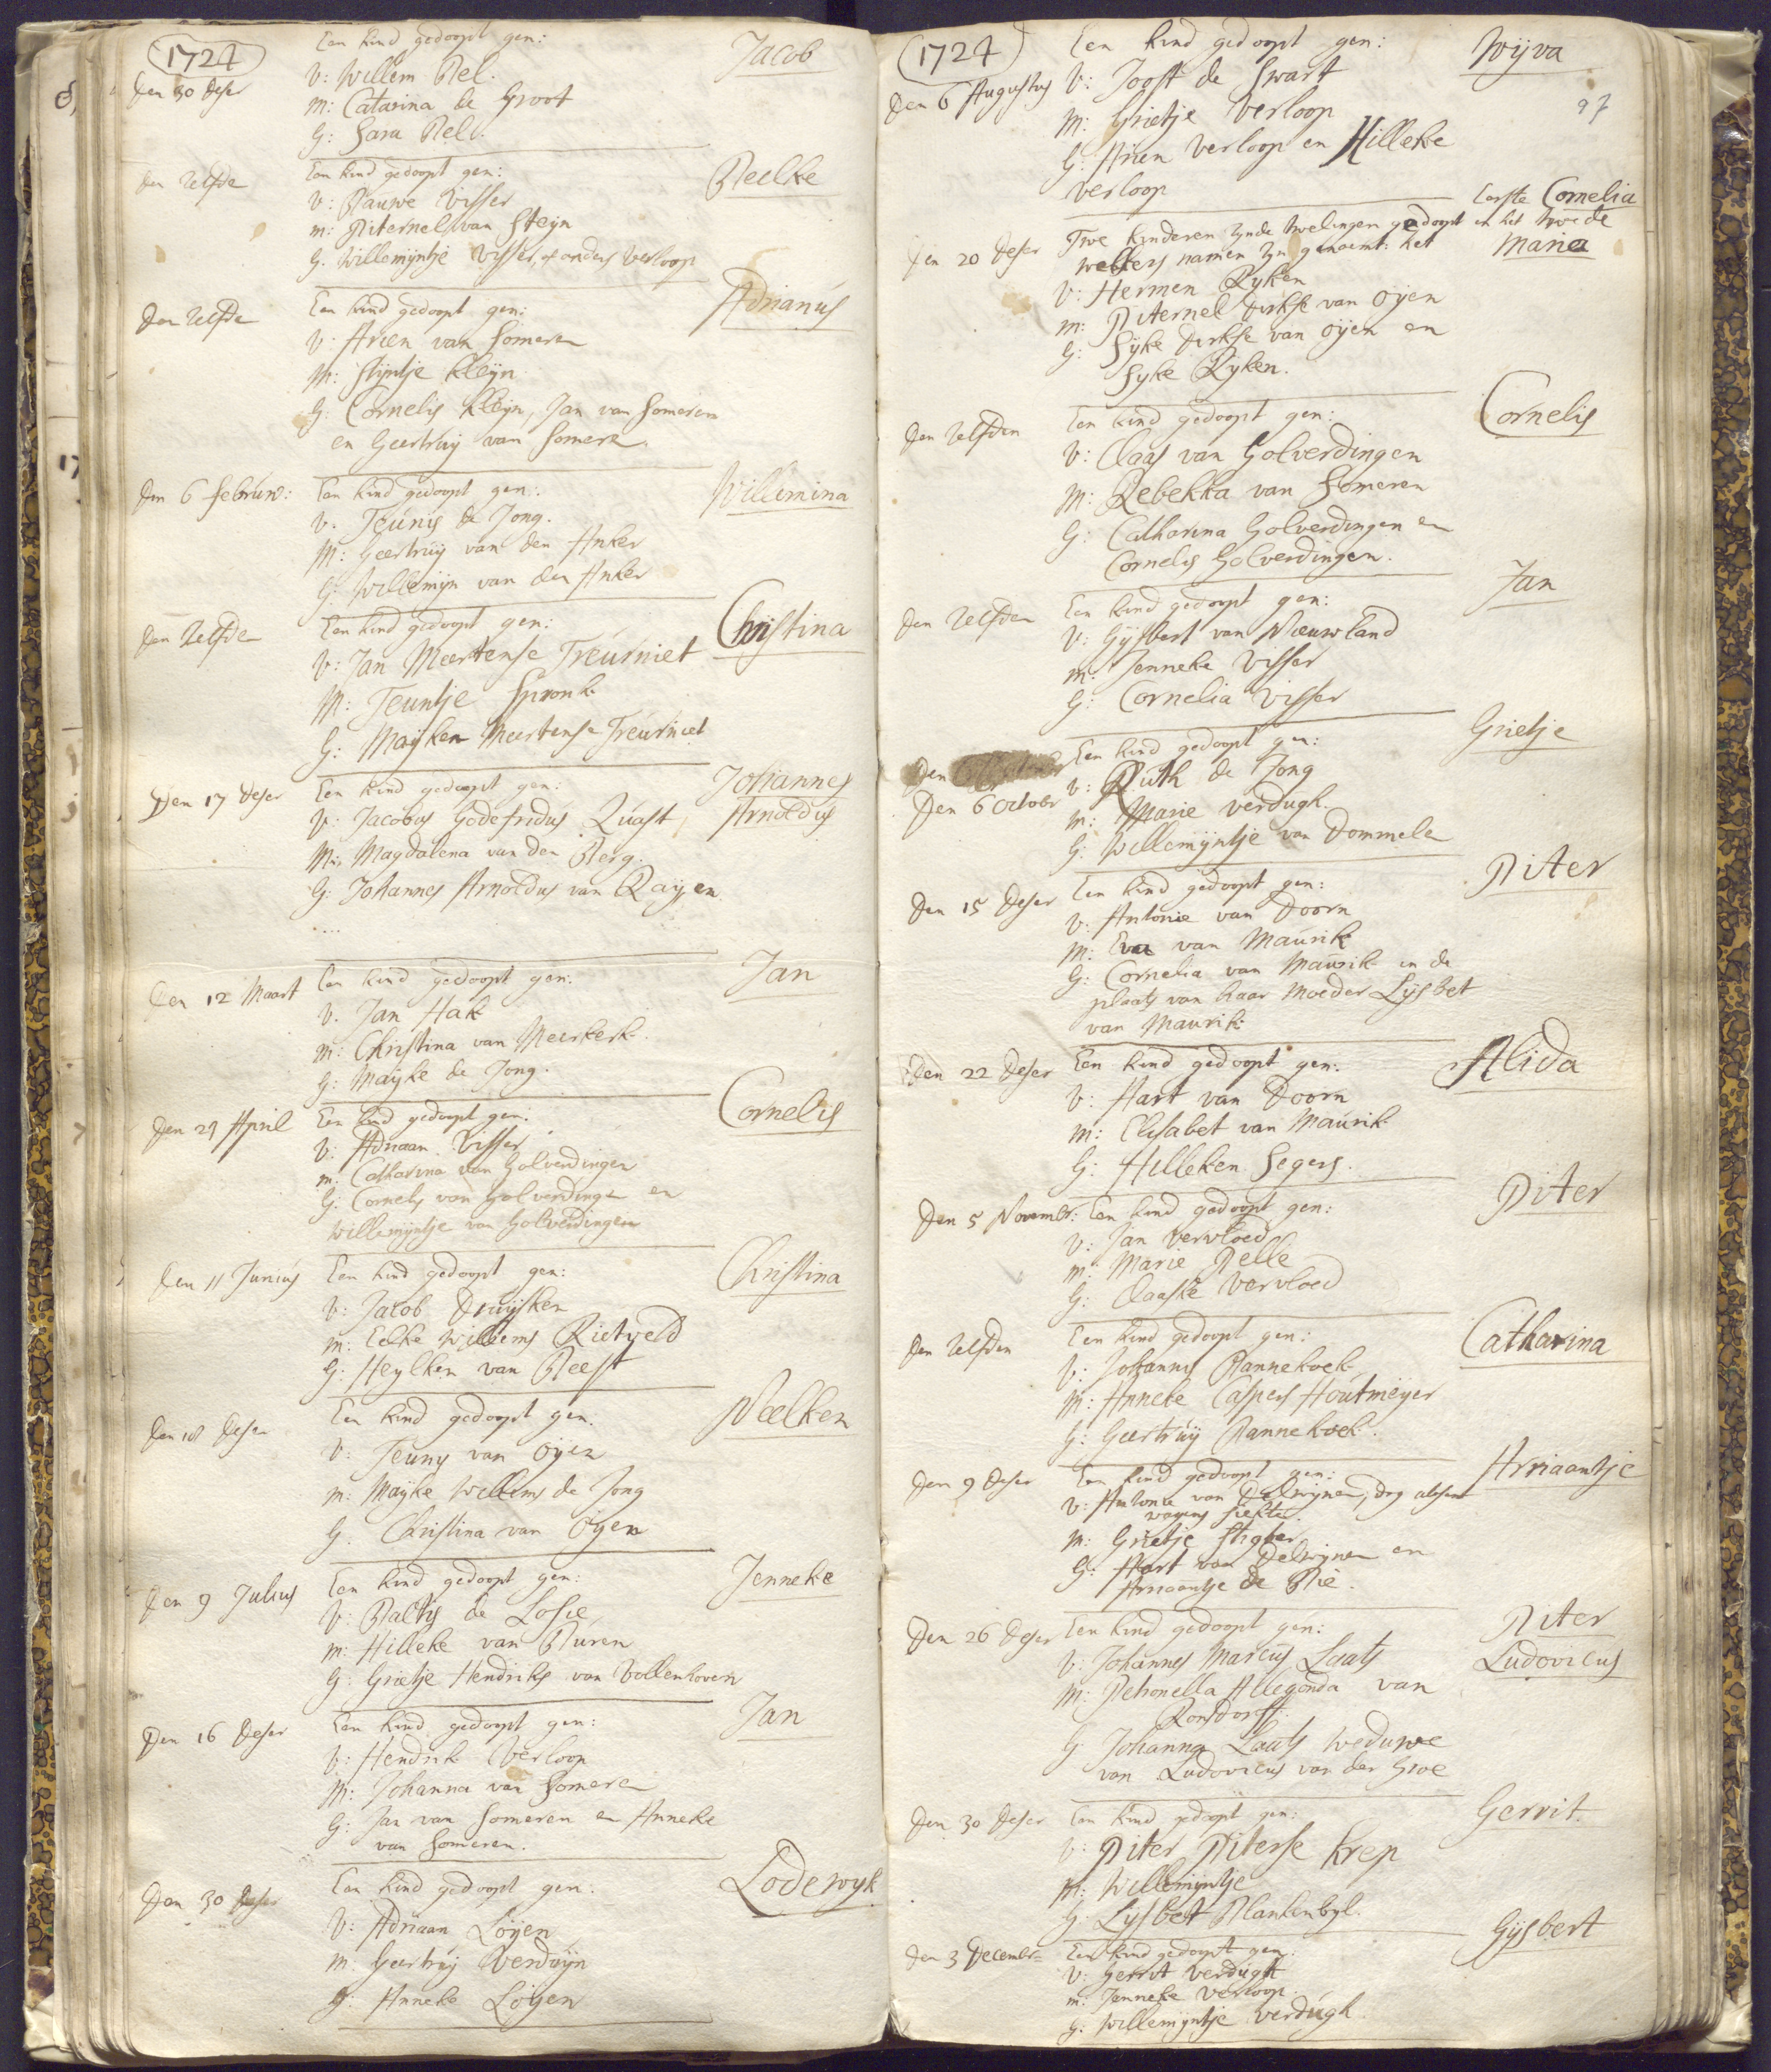 1724
Een kind gedoopt gen: Jacob
den 30 deser
V: Willem Bel.
M: Catarina de Groot
G: Sara Bel.
den zelfde
Een kind gedoopt gen: Beelke
V: Bauwe Visser
m: Piternel van Steyn
G. Willemijntje Visser, of anders Verloop
den zelfde
Een kind gedoopt gen: Adrianus
V: Arien van Someren
M: Stijntje Kleijn
G: Cornelis Kleijn, Jan van Someren
en Geertruij van Somere.
den 6 februar: Een kind gedoopt gen: Willemina
V. Teunis de Jong.
M: Geertruij van den Anker
G: Willemijn van den Anker
den zelfde Een kind gedoopt gen: Christina
V: Jan Meertense Treurniet
M: Teuntje Spronk
G: Mayken Meertense Treurniet
Den 17 deser Een kind gedoopt gen: Johannes
V. Jacobus Godefridus Quast Arnoldus
M: Magdalena van den Berg.
G: Johannes Arnoldus van Rayen
den 12 Maart Een kind gedoopt gen: Jan
V. Jan Hak
m: Christina van Meerkerk.
g: Mayke de Jong.
den 29 April Een kind gedoopt gen: Cornelis
V: Adriaan Visser
m: Catharina van Golverdingen
G: Cornelis van Golverdinge en
Willemijntje van Golverdingen
den 11 Junius Een kind gedoopt gen: Christina
V: Jacob Druijsken
m: Eelke Willems Rietveld
G: Heylken van Beest
den 18 deser Een kind gedoopt gen. Neelken
V: Teuny van Oyen
m: Mayke Willems de Jong
G: Christina van Oyen
den 9 Julius Een kind gedoopt gen: Jenneke
V: Balty de Losie
m: Hilleke van Buren
G: Grietje Hendriks van Vollenhoven
den 16 deser Een kind gedoopt gen: Jan
V: Hendrik Verloop
M: Johanna van Somere
G: Jan van Someren en Anneke
van Someren.
den 30 deser Een kind gedoopt gen: Lodewyk
V: Adriaan Loyen
M: Geertruy Verduyn
G: Anneke Loyen
1724
Een kind gedoopt gen: Wyva
den 6 Augustus V: Joost de Swart
97
M: Grietje Verloop
G: Arien Verloop en Hilleke
Verloop
den 20 deser Twe kinderen zynde twelingen gedoopt
welkers namen zyn genaemt: het eerste Cornelia en het twede Maria
V: Hermen Ryken
m: Piternel Dirkse van Oyen
G: Syke Dirkse van Oyen en
Syke Ryken.
den zelfden Een kind gedoopt gen: Cornelis
V: Claas van Golverdingen
M: Rebekka van Someren
G: Catharina Golverdingen en
Cornelis Golverdingen.
den zelfden Een kind gedoopt gen: Jan
V: Gysbert van Nieuwland
m: Jenneke Visser
G: Cornelia Visser
Den
Een kind gedoopt gen: Grietje
Den 6 October V: Ruth de Jong
m: Marie Verdugh.
G: Willemijntje van Dommele
Den 15 deser Een kind gedoopt gen: Piter
V: Antonie van Doorn
M: Eva van Maurik
G: Cornelia van Maurik in de
plaats van haar moeder Lysbet
van Maurik
Den 22 deser Een kind gedoopt gen: Alida
V: Hart van Doorn
M: Elisabet van Maurik
G: Hilleken Segers.
Den 5 November: Een kind gedoopt gen: Piter
V: Jan Vervloed
m: Marie Pelle
G: Claaske Vervloed
den zelfden Een kind gedoopt gen: Catharina
V: Johannes Pannekoek
M: Anneke Caspers Houtmeyer
G: Geertruy Pannekoek.
Den 9 deser Een kind gedoopt gen: Ariaantje
V: Antonie van Delwynen, dog absent
wegens siekte.
M: Grietje Stigter
G: Hart van Delwynen en
Ariaantje de Bie.
Den 26 deser Een kind gedoopt gen: Piter
V: Johannes Marcus Laats Ludovicus
M: Petronella Allegonda van
Ronsdorff.
G: Johanna Laats weduwe
van Ludovicus van der Groe
Den 30 deser Een kind gedoopt gen: Gerrit.
V: Piter Piterse Krep
M: Willemijntje
G: Lysbet Blankenbyl.
den 3 December Een kind gedoopt gen: Gysbert
V: Gerrit Verdugh
m: Jenneke Verloop.
G: Willemyntje Verdugh